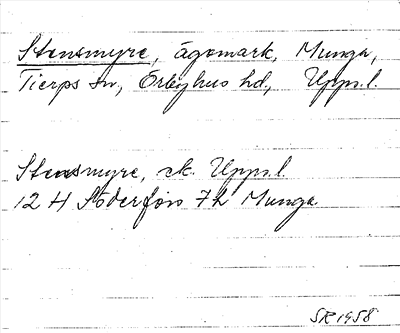 Stensmyre, ägomark, Munga,
Tierps sn, Örbyhus hd, Upps.l.
Stensmyre, ek. Upps.l.
12 H Söderfors 7h Munga
SR 1958